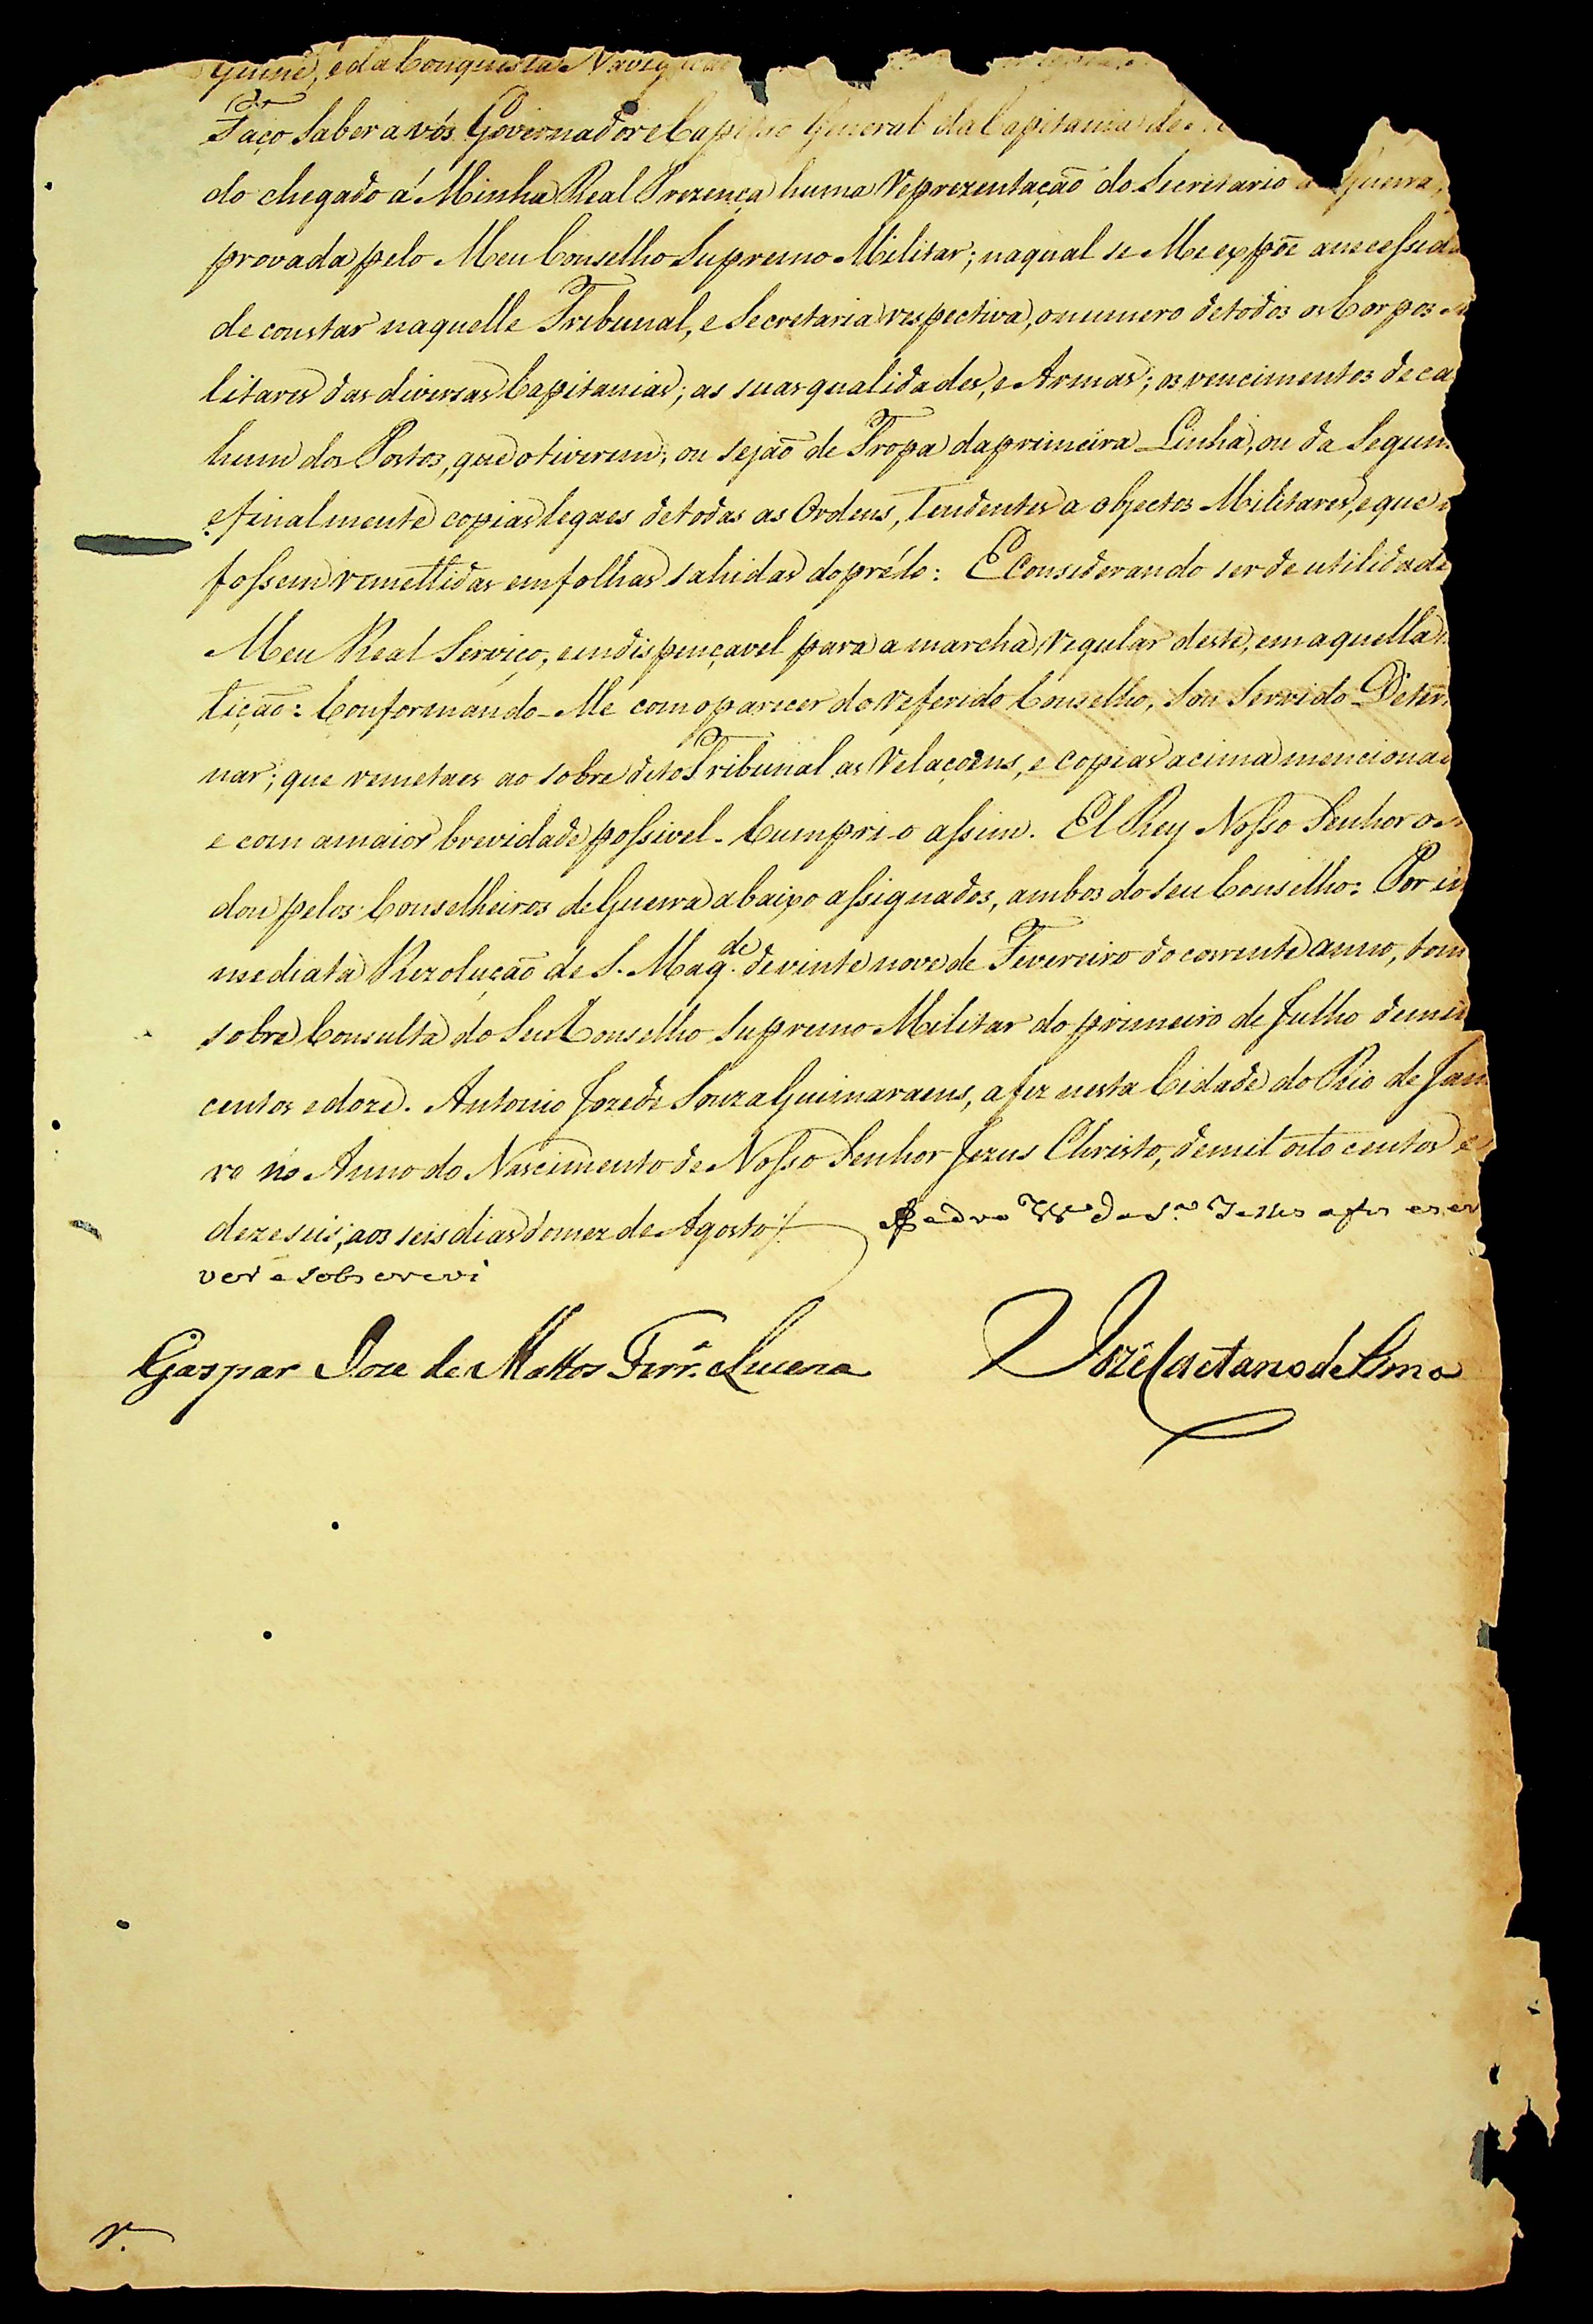 Guiné, e da Conquista Naveg
Faço Saber a vós Governador e Capitão General da Capitania de
do chegado á Minha Real Prezença huma Reprezentação do Secretario Guerra,
provada pelo Meu Conselho Supremo Militar; naqual se Me expõe anecessid
de constar naquelle Tribunal, e Secretaria respectiva, onumero detodos os Corpos
litares das diversas Capitanias; as suas qualidades, e Armas; os vencimentos de ca
hum dos Postos, que otiverem; ou sejão de Tropa daprimeira Linha, ou da Segun
efinalmente copias legaes detodas as Ordens, tendentes a objectos Militares, eque
fossem remettidas emfolhas sahidas doprélo: E Considerando ser de utilidade
Meu Real Serviço, eindispençavel para a marcha regular deste, em aquella
tição: Conformando-Me como parecer do referido Conselho, Sou Servido Deter
nar; que remetaes ao sobredito Tribunal as Relaçoens, e copias acima menciona
e com amaior brevidade possivel. Cumpri-o assim. El Rey Nosso Senhor o
dou pelos Conselheiros de Guerra abaixo assignados, ambos do seu Conselho: Por im
mediata Rezolução de S. Mag.de devinte nove de Fevereiro do corrente anno, tom
sobre Consulta do Seu Conselho Supremo Militar do primeiro de Julho demil
centos edoze. Antonio Joze de Souza Guimaraens, a fez nesta Cidade do Rio de Jan
ro no Anno do Nascimento de Nosso Senhor Jezus Christo, demil oito centos e
dezeseis; aos seis dias domez de Agosto Pedro Telles a fez escr
ver e sobscrevi
Gaspar Joze de Mattos Ferr.a Lucena Joze Caetano de Lima